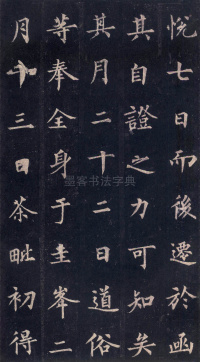 悦七日而後遷於函
其自證之力可知矣
其月二十二日道俗
等奉全身于圭峯二
月十三日茶毗初得
墨客书法字典